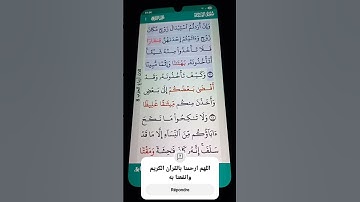 وَإِنْ أَرَدتُّمُ ٱسْتِبْدَالَ زَوْجٍ مَّكَانَ
زَوْجٍ وَءَاتَيْتُمْ إِحْدَىٰهُنَّ قِنطَارًا
فَلَا تَأْخُذُوا۟ مِنْهُ شَيْـًٔا
أَتَأْخُذُونَهُۥ بُهْتَـٰنًا وَإِثْمًا مُّبِينًا
وَكَيْفَ تَأْخُذُونَهُۥ وَقَدْ
أَفْضَىٰ بَعْضُكُمْ إِلَىٰ بَعْضٍ
وَأَخَذْنَ مِنكُم مِّيثَـٰقًا غَلِيظًا
وَلَا تَنكِحُوا۟ مَا نَكَحَ
ءَابَآؤُكُم مِّنَ ٱلنِّسَآءِ إِلَّا مَا قَدْ
سَلَفَ إِنَّهُۥ كَانَ فَـٰحِشَةً وَمَقْتًا
اللهم ارحمنا بالقرآن الكريم
وانفعنا به
Répondre